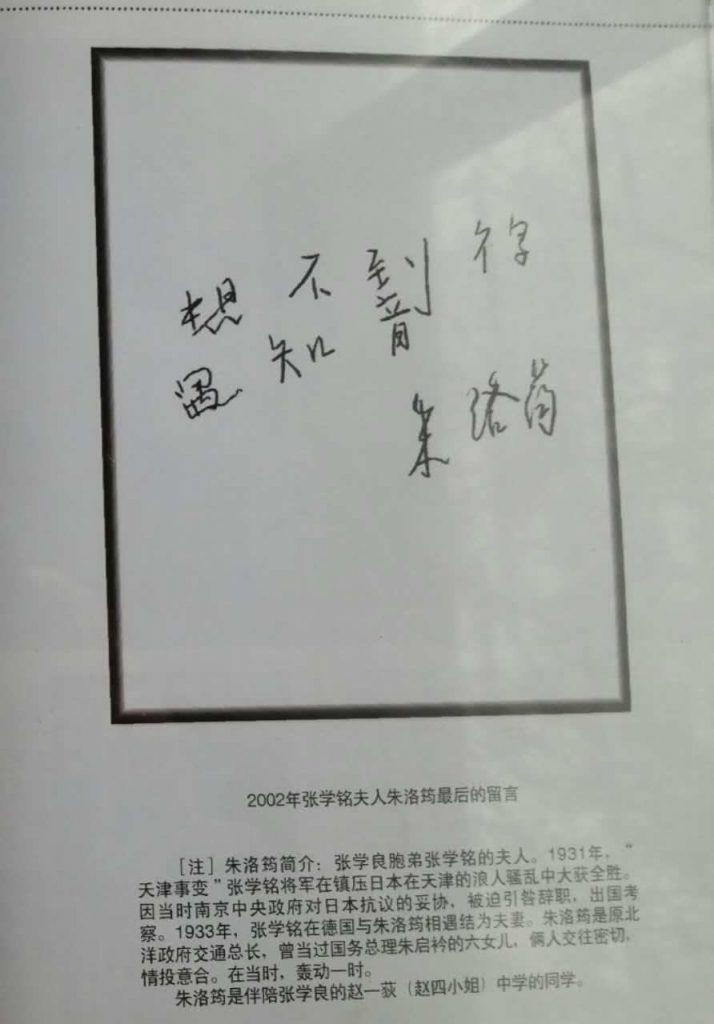 想不到得
遇知音
朱洛筠
2002年张学铭夫人朱洛筠最后的留言
［注］朱洛筠简介：张学良胞弟张学铭的夫人。1931年，“
天津事变”张学铭将军在镇压日本在天津的浪人骚乱中大获全胜。
因当时南京中央政府对日本抗议的妥协，被迫引咎辞职，出国考
察。1933年，张学铭在德国与朱洛筠相遇结为夫妻。朱洛筠是原北
洋政府交通总长，曾当过国务总理朱启衿的六女儿，俩人交往密切，
情投意合。在当时，轰动一时。
朱洛筠是伴陪张学良的赵一荻（赵四小姐）中学的同学。